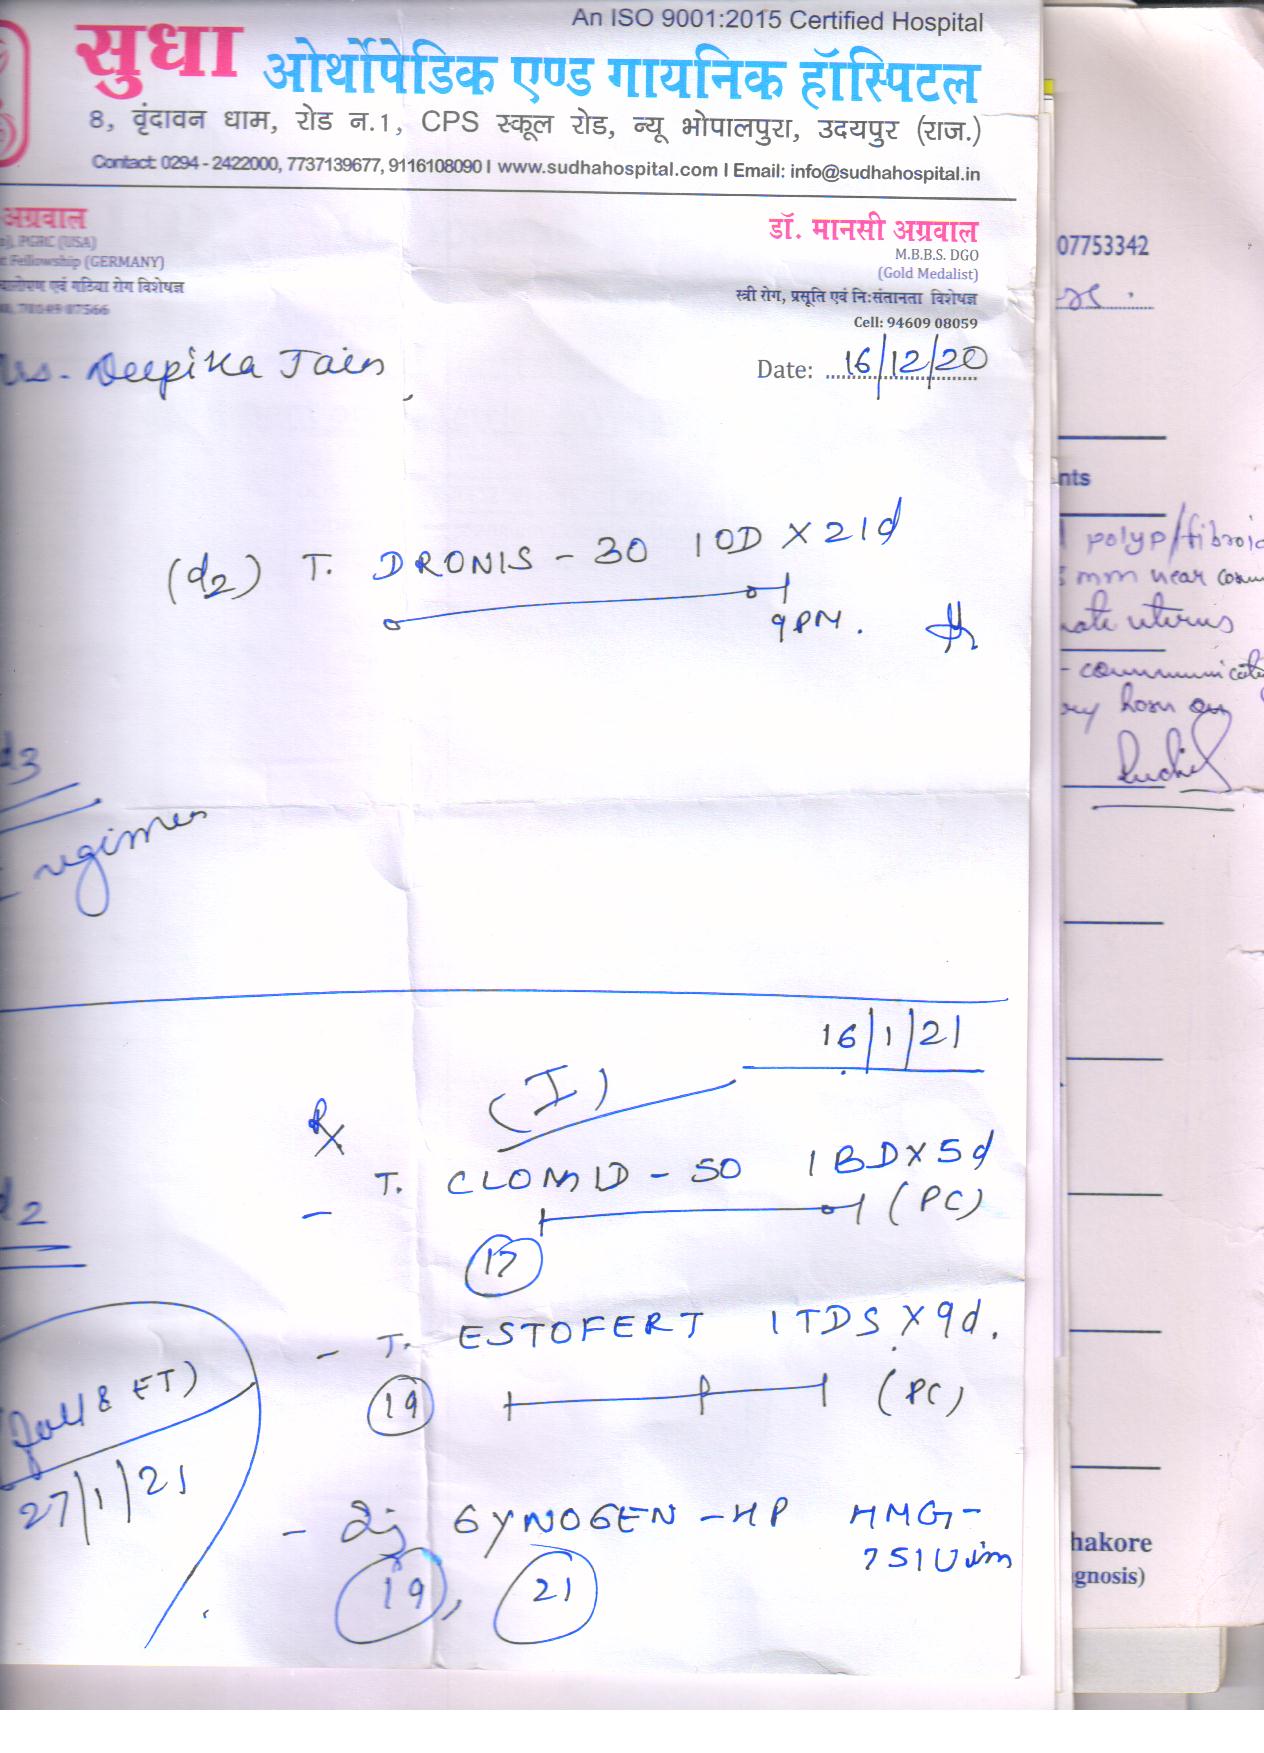 An ISO 9001:2015 Certified Hospital
सुधा ओर्थोपेडिक एण्ड गायनिक हॉस्पिटल
8, वृंदावन धाम, रोड न.1, CPS स्कूल रोड, न्यू भोपालपुरा, उदयपुर (राज.)
Contact: 0294 - 2422000, 7737139677, 9116108090 I www.sudhahospital.com I Email: info@sudhahospital.in
अग्रवाल
PGRC (USA)
Fellowship (GERMANY)
एवं गठिया रोग विशेषज्ञ
07566
डॉ. मानसी अग्रवाल
M.B.B.S. DGO
(Gold Medalist)
स्त्री रोग, प्रसूति एवं नि:संतानता विशेषज्ञ
Cell: 94609 08059
Deepika Jain
Date: 16/12/20
(d2) T. DRONIS - 30 1 OD X 21d
9 PM.
d3
regimen
16/1/21
(I)
Rx
T. CLOMID - 50 1 BD X 5d
(PC)
17
d2
- T. ESTOFERT 1 TDS X 9d.
19 (PC)
& ET)
27/1/21
- Inj GYNOGEN - HP HMG -
75 IU im
19, 21
07753342
nts
polyp/fibroid
mm near
uterus
- communicat
horn on
hakore
gnosis)